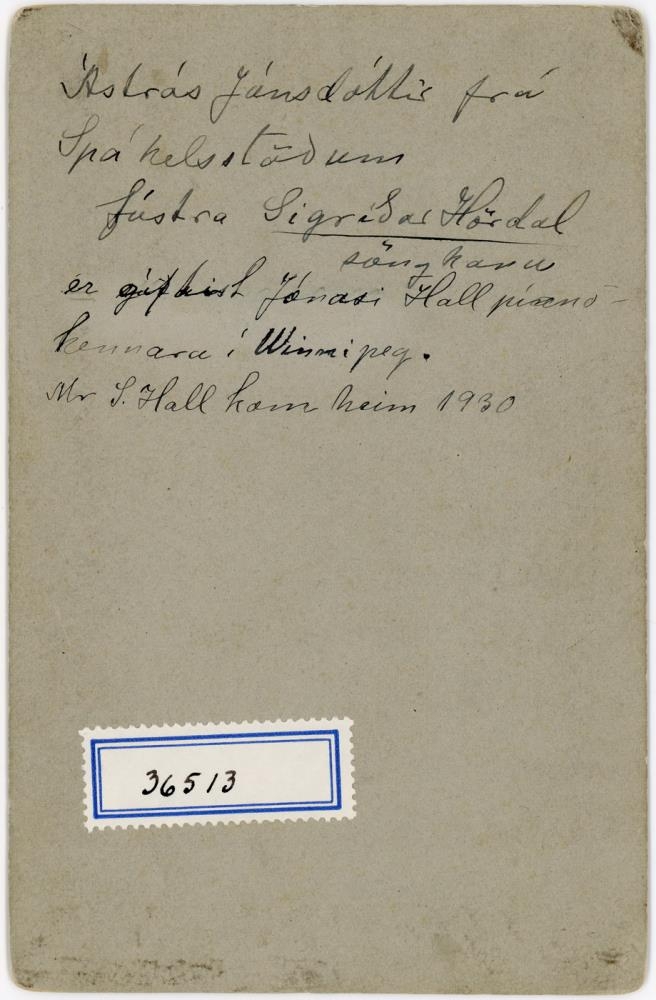 Ástrós Jónsdóttir frá
Spákelsstöðum
fóstra Sigríðar Hördal
söngkonu
er giftist Jónasi Hall píanó-
kennara í Winnipeg.
Mr S. Hall kom heim 1930
36513